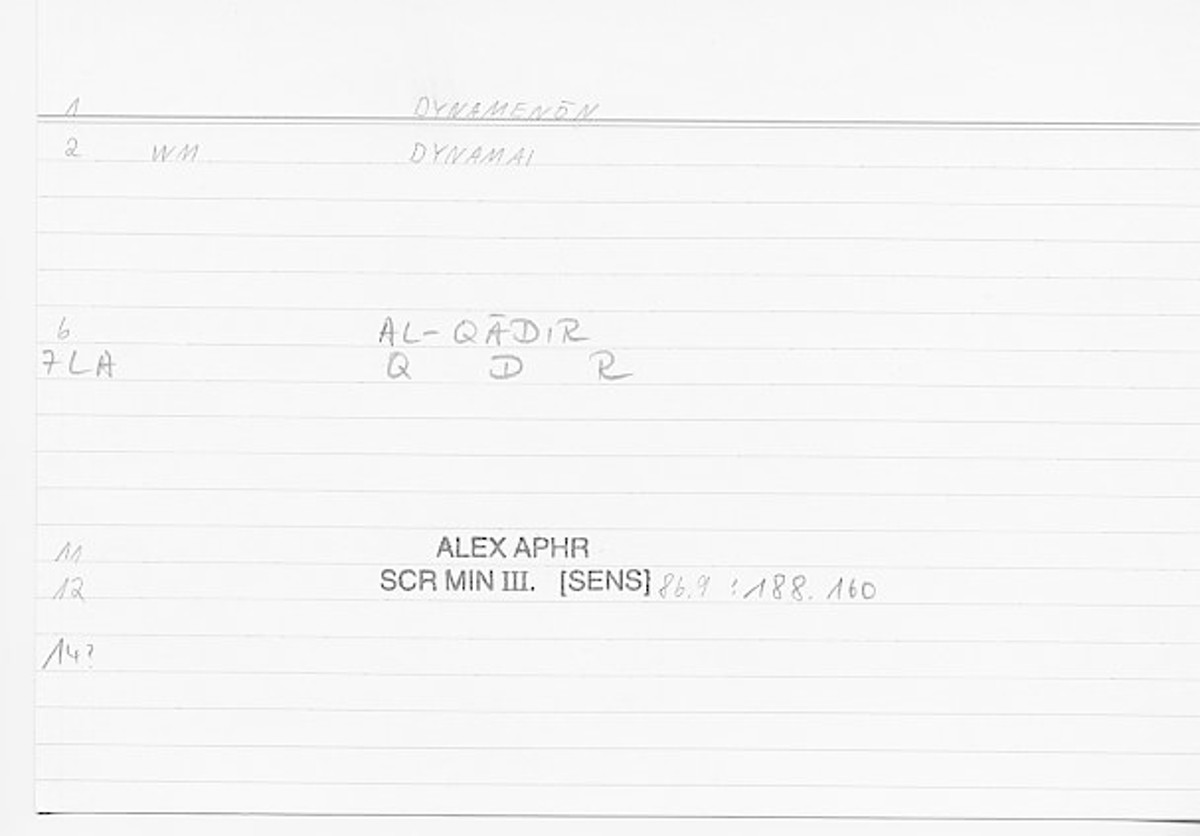 1 DYNAMENŌN
2 WM DYNAMAI
6 AL-QĀDIR
7 LA Q D R
11 ALEX APHR
12 SCR MIN III. [SENS] 86.9 : 188.160
14?